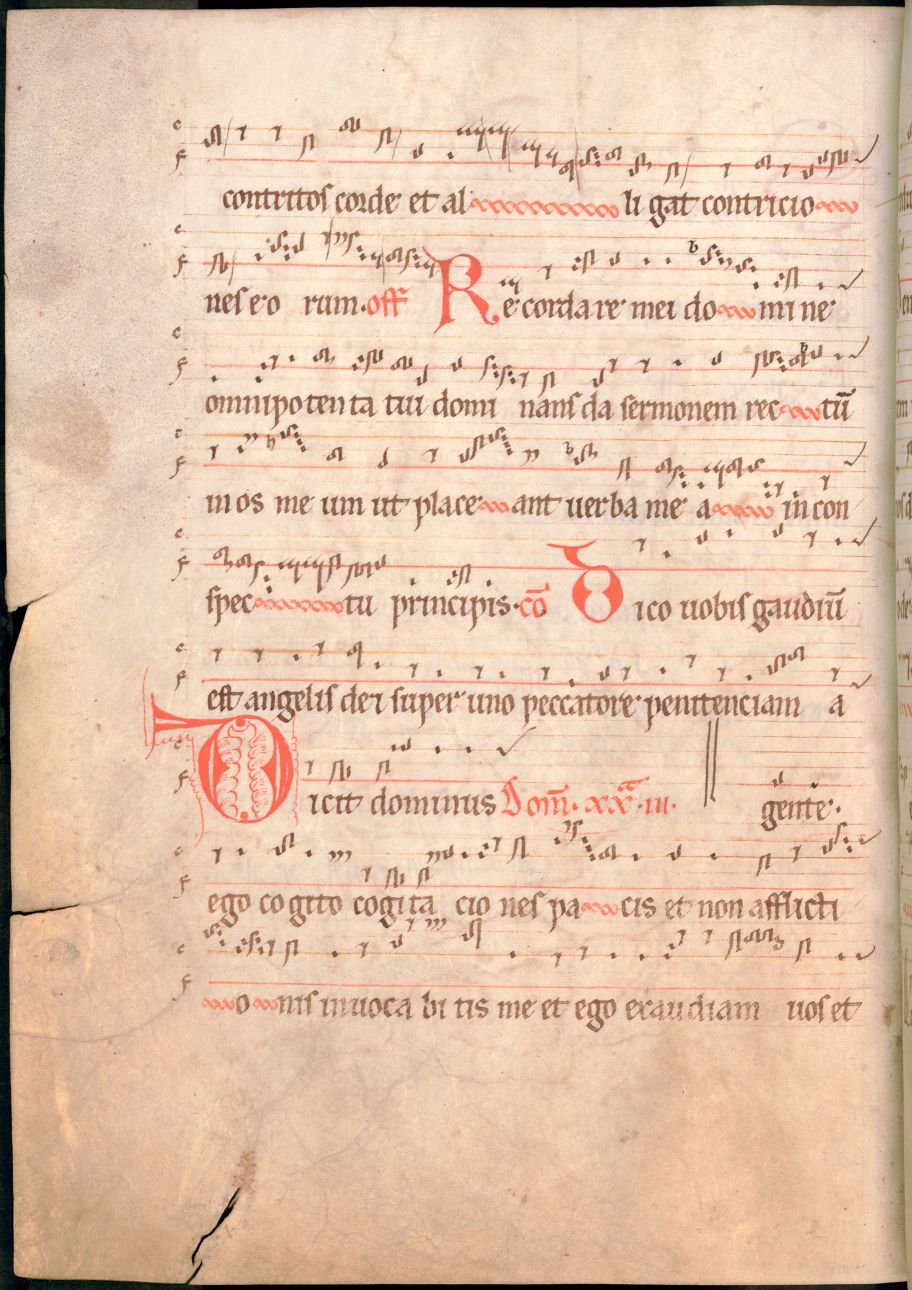 contritos corde et al li gat contricio
nes e o rum. off̄ Re corda re mei do mi ne
omnipoten ta tui domi nans da sermonem rec tū
in os me um ut place ant uerba me a in con
spec tu principis. cō Dico uobis gaudiū
est angelis dei super uno peccatore penitenciam a
Dicit dominus Dom̄. xx̄. iii. gente.
ego co gito cogita cio nes pa cis et non afflicti
o nis inuoca bi tis me et ego exaudiam uos et